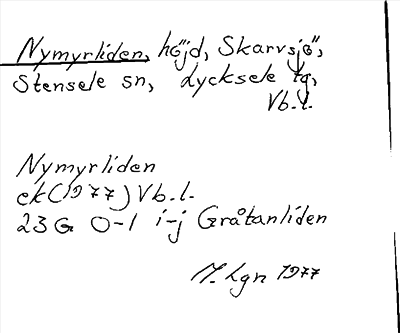 Nymyrliden, höjd, Skarvsjö,
Stensele sn, Lycksele tg,
Vb.l.
Nymyrliden
ek (1977) Vb.l.
23 G 0-1 i-j Gråtanliden
M. Lgn 1977